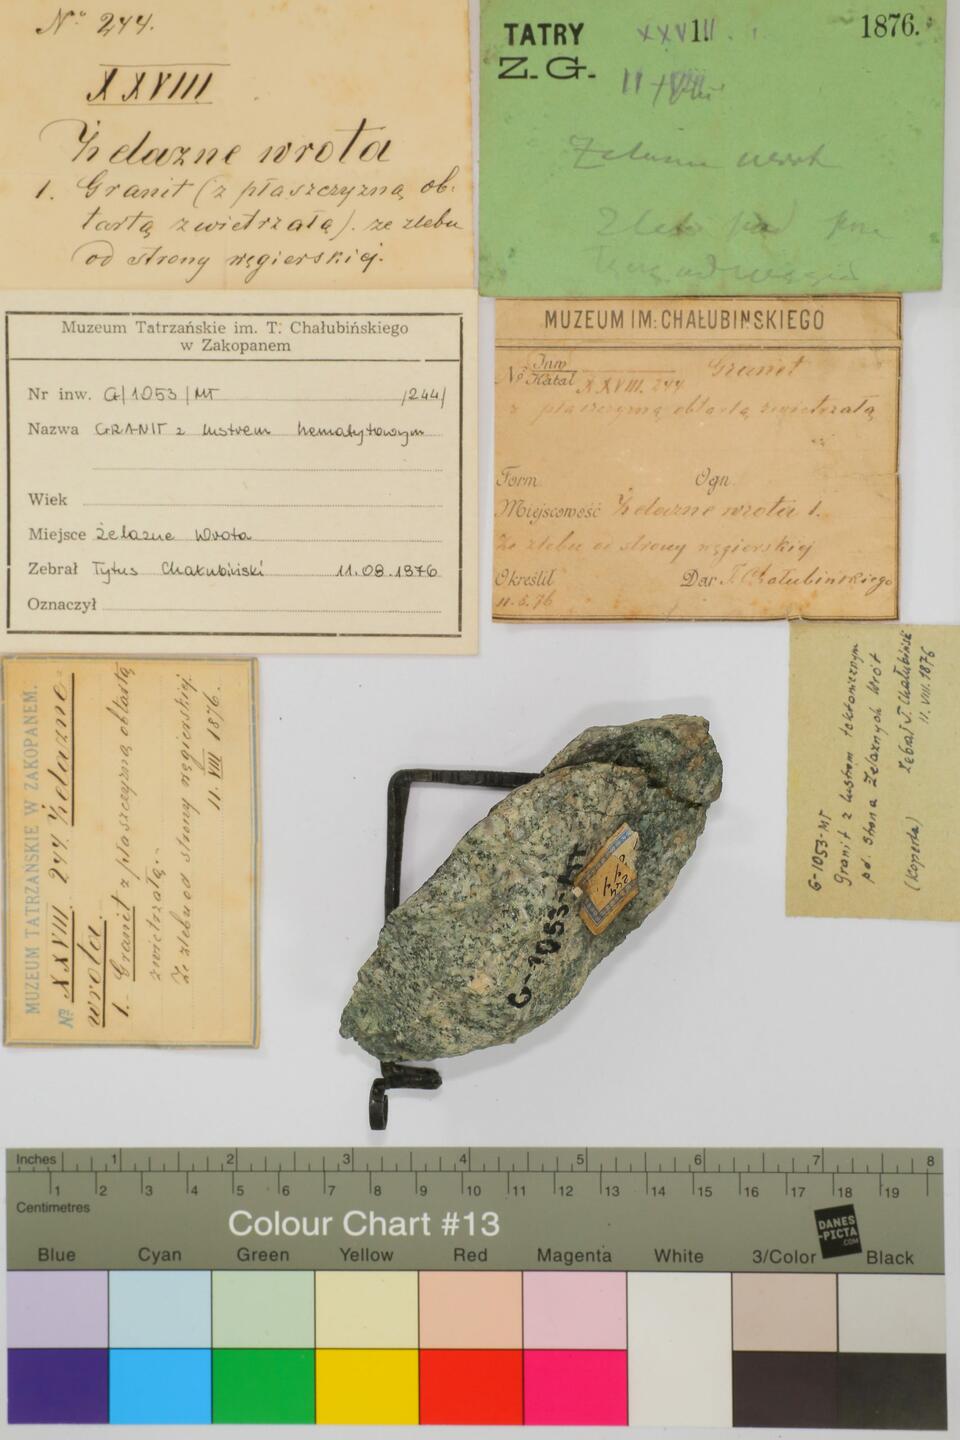 No 244.
XXVIII
Żelazne wrota
1. Granit (z płaszczyzną ob-
tartą zwietrzałą). ze żlebu
od strony węgierskiej.
TATRY
Z. G.
XXVIII.
1876.
Żelazne
Żleb pod
Muzeum Tatrzańskie im. T. Chałubińskiego
w Zakopanem
Nr inw. G/1053/MT /244/
Nazwa GRANIT z lustrem hematytowym
Wiek
Miejsce Żelazne Wrota
Zebrał Tytus Chałubiński 11.08.1876
Oznaczył
MUZEUM IM: CHAŁUBIŃSKIEGO
No Inw Katal XXVIII. 244 Granit
z płaszczyzną obtartą zwietrzałą
Form. Ogn.
Miejscowość Żelazne wrota 1.
Ze żlebu od strony węgierskiej
Określił Dar T. Chałubińskiego
11.8.76
MUZEUM TATRZAŃSKIE W ZAKOPANEM.
No XXVIII 244. Żelazne
wrota.
1.- Granit z płaszczyzną obtartą
zwietrzałą.-
Ze żlebu od strony węgierskiej.
11. VIII 1876.
G-1053-MT
Granit z lustrem tektonicznym
pd. strona Żelaznych Wrót
Zebrał T. Chałubiński
(Koperta) 11. VIII. 1876
G-1053-MT
244.
Inches 1 2 3 4 5 6 7 8
1 2 3 4 5 6 7 8 9 10 11 12 13 14 15 16 17 18 19
Centimetres
Colour Chart #13
DANES
-PICTA
.COM
Blue Cyan Green Yellow Red Magenta White 3/Color Black